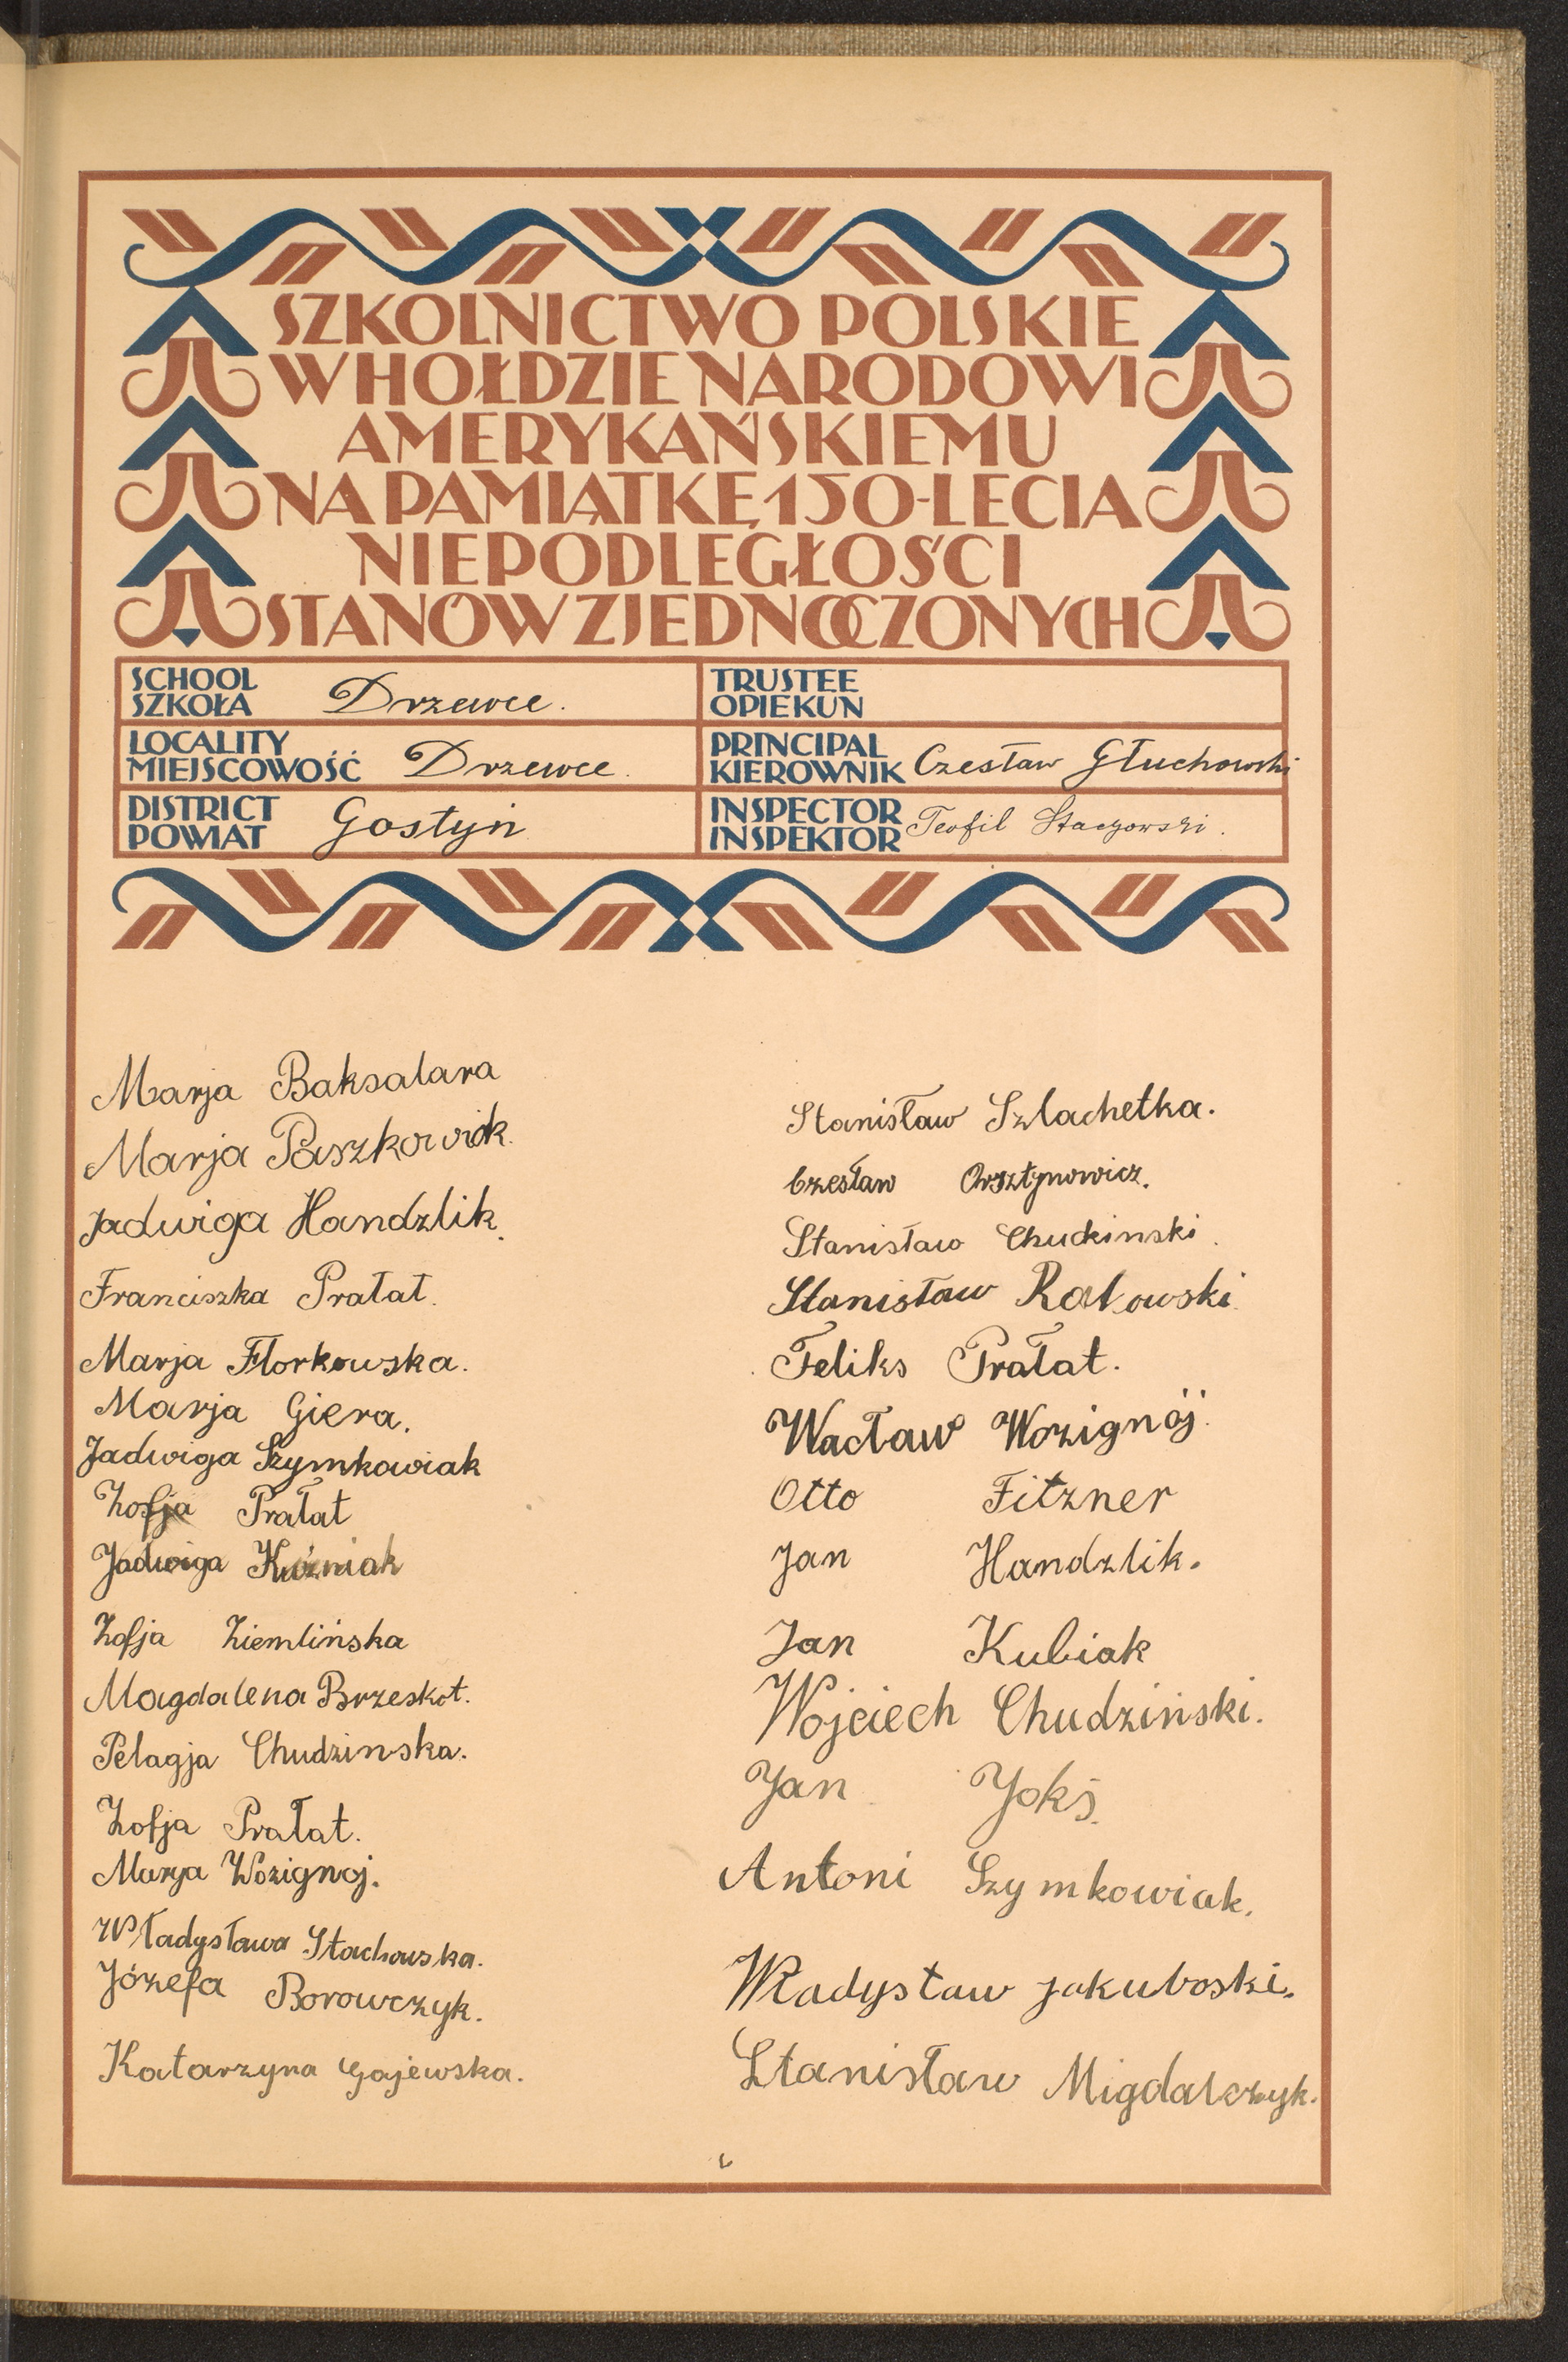 SZKOLNICTWO POLSKIE
W HOŁDZIE NARODOWI
AMERYKAŃSKIEMU
NA PAMIĄTKĘ 150-LECIA
NIEPODLEGŁOŚCI
STANÓW ZJEDNOCZONYCH
SCHOOL
SZKOŁA Drzewce.
TRUSTEE
OPIEKUN
LOCALITY
MIEJSCOWOŚĆ Drzewce.
PRINCIPAL
KIEROWNIK Czesław Głuchowski
DISTRICT
POWIAT Gostyń
INSPECTOR
INSPEKTOR Teofil
Marja Baksalara
Marja Paszkowiak.
Jadwiga Handzlik.
Franciszka Prałat.
Marja Florkowska.
Marja Giera.
Jadwiga Szymkowiak
Zofja Prałat
Jadwiga Kuźniak
Zofja Ziemlińska
Magdalena Brzeskot.
Pelagja Chudzinska.
Zofja Prałat.
Marja Wozignoj.
Władysława Stachowska.
Józefa Borowczyk.
Katarzyna Gajewska.
Stanisław Szlachetka.
Czesław
Stanisław
Stanisław Ratowski.
Feliks Prałat.
Wacław Wozignój.
Otto Fitzner
Jan Handzlik.
Jan Kubiak
Wojciech Chudziński.
Jan Jokś.
Antoni Szymkowiak.
Władysław Jakuboski.
Stanisław Migdalczyk.